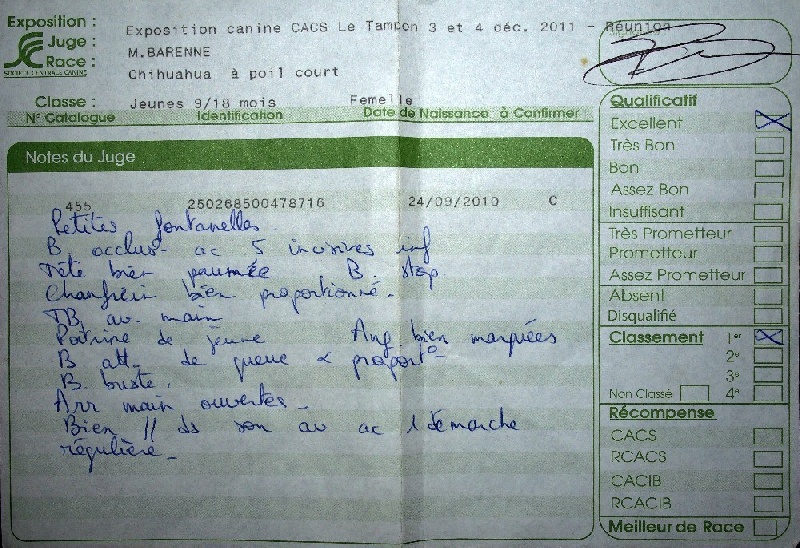 Exposition : Exposition canine CACS Le Tampon 3 et 4 déc. 2011 - Réunion
Juge : M.BARENNE
Race : Chihuahua à poil court
SOCIÉTÉ CENTRALE CANINE
Classe : Jeunes 9/18 mois Femelle
N° Catalogue Identification Date de Naissance à Confirmer
Notes du Juge
455 250268500478716 24/09/2010 C
Petites fontanelles.
B occlus° ac 5 incisives inf
Tête bien paumée B. stop
Chanfrein bien proportionné.
TB. av. main
Poitrine de jeune Ang. bien marquées
B att. de queue & proport°
B. buste.
Arr main ouvertes.
Bien // ds son av ac 1 démarche
régulière.
Qualificatif
Excellent
Très Bon
Bon
Assez Bon
Insuffisant
Très Prometteur
Prometteur
Assez Prometteur
Absent
Disqualifié
Classement 1er
2e
3e
Non Classé 4e
Récompense
CACS
RCACS
CACIB
RCACIB
Meilleur de Race